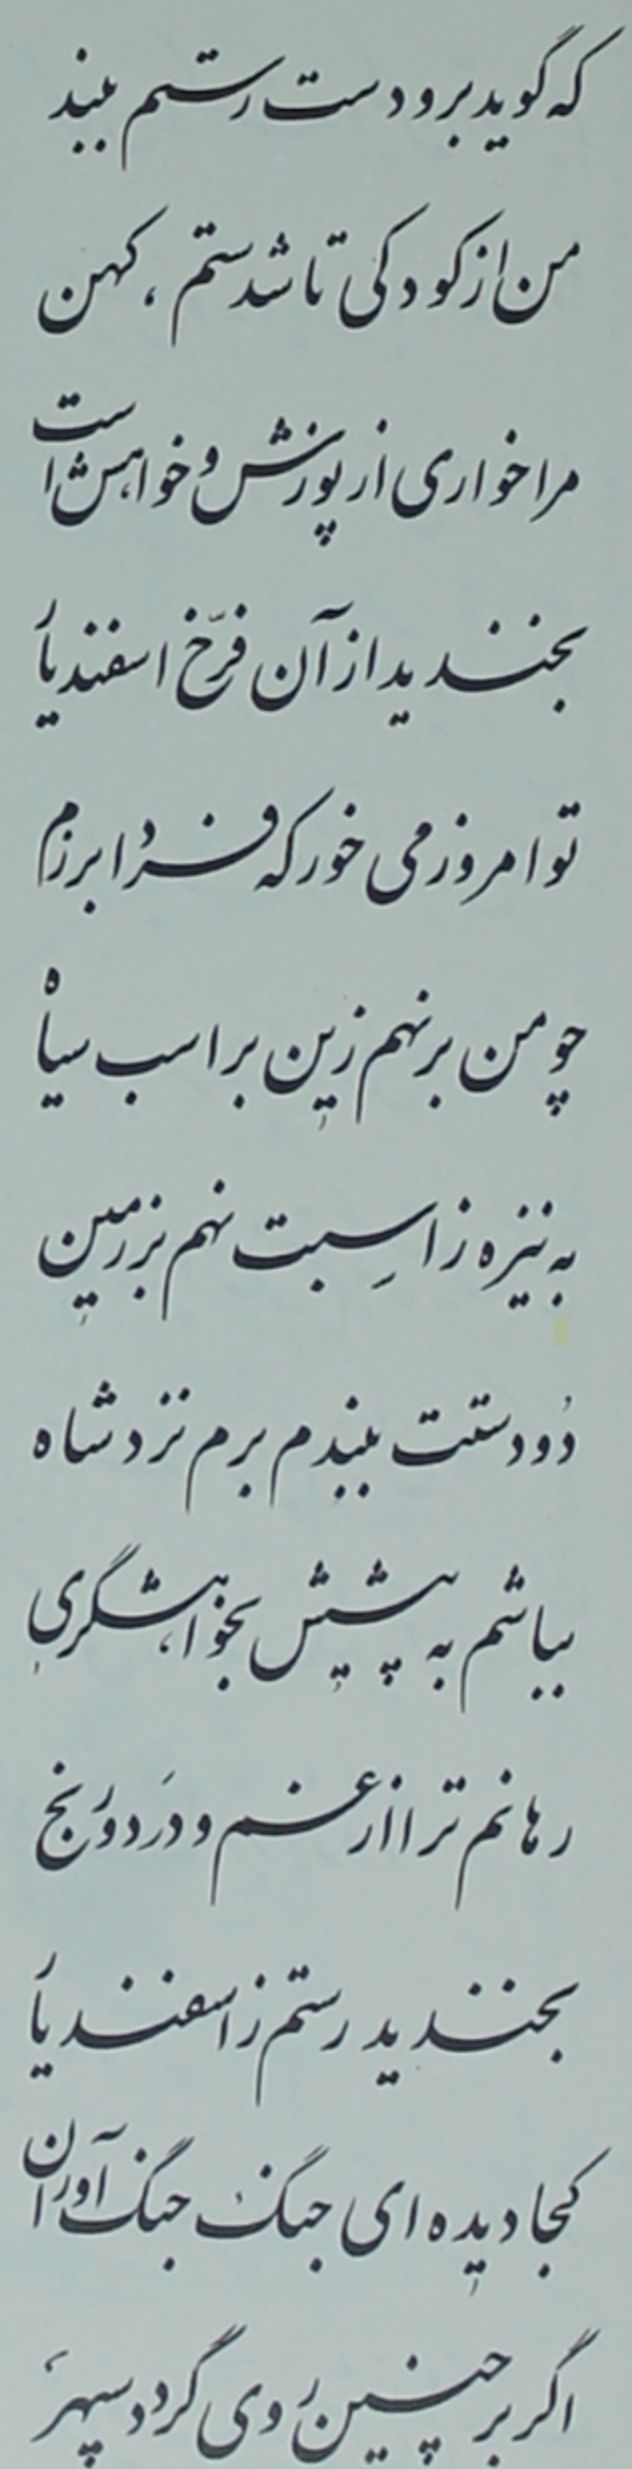 که گوید برو دست رستم ببند
من از کودکی تا شدستم، کهن
مرا خواری از پوزش و خواهش است
بخندید از آن فرّخ اسفندیار
تو امروز می خور که فردا برزم
چو من برنهم زین بر اسب سیاه
به نیزه ز اسبت نهم بر زمین
دُو دستت ببندم برم نزد شاه
بباشم به پیشش بخواهشگری
رهانم ترا از غم و دَرد و رنج
بخندید رستم ز اسفندیار
کجا دیده ای جنگ جنگ آوران
اگر بر چنین روی گردد سپهر